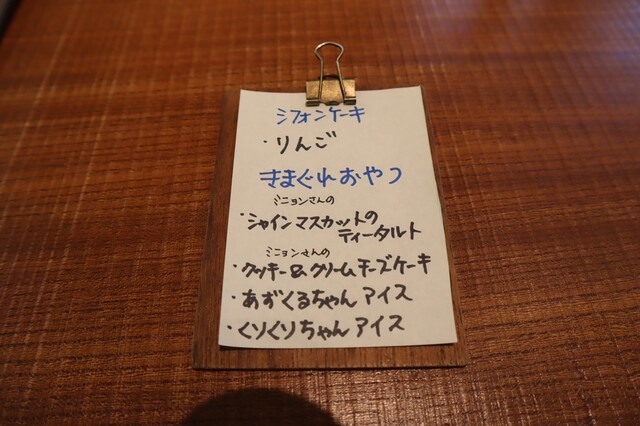 シフォンケーキ
・りんご
きまぐれおやつ
ミニョンさんの
・シャインマスカットの
ティータルト
ミニョンさんの
・クッキー&クリームチーズケーキ
・あずくるちゃんアイス
・くりくりちゃんアイス